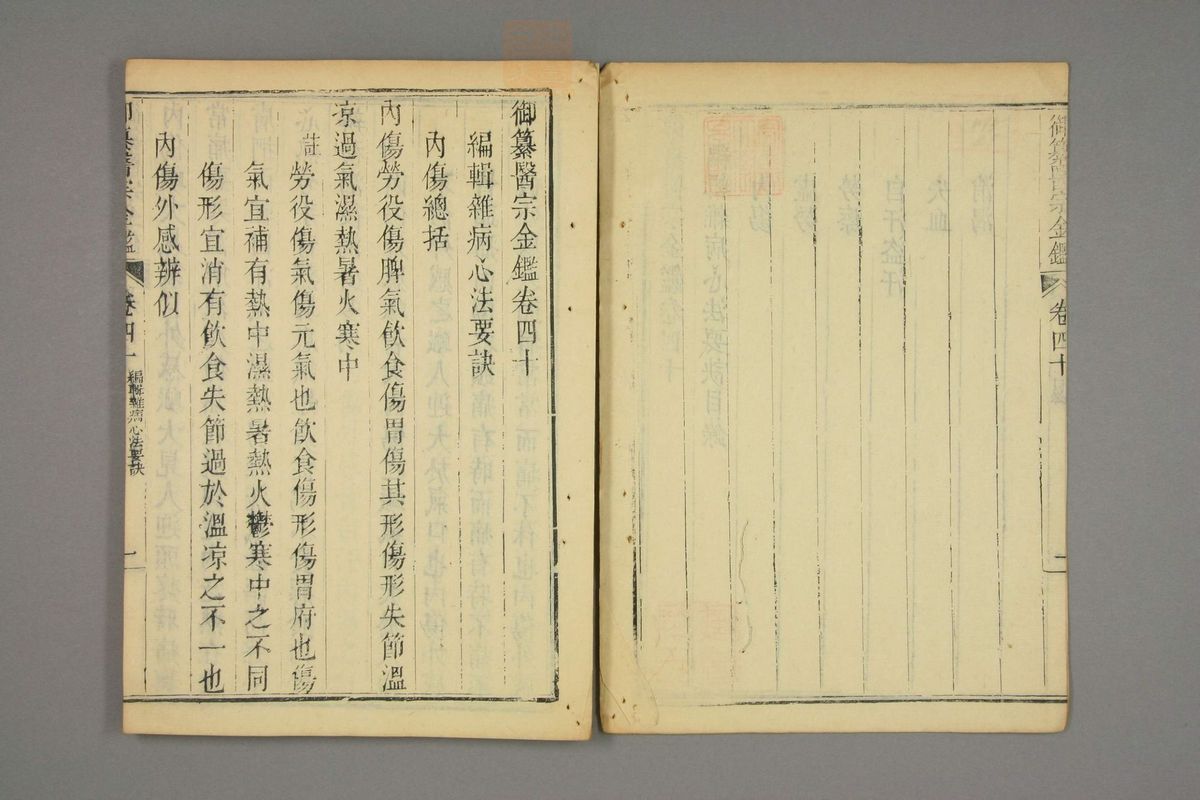 御纂醫宗金鑑
卷四十
二
御纂醫宗金鑑卷四十
編輯雜病心法要訣
內傷總括
內傷勞役傷脾氣飲食傷胃傷其形傷形失節溫
凉過氣濕熱暑火寒中
註勞役傷氣傷元氣也飲食傷形傷胃府也傷
氣宜補有熱中濕熱暑熱火鬱寒中之不同
傷形宜消有飲食失節過於溫凉之不一也
內傷外感辨似
御纂醫宗金鑑
卷四十
編輯雜病心法要訣
一